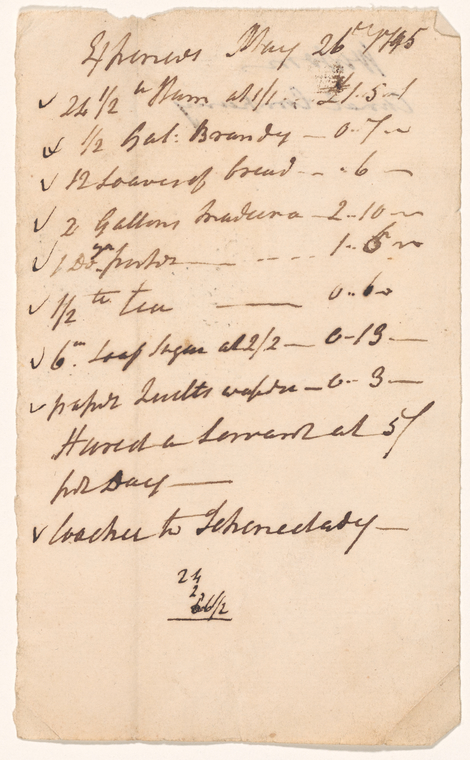 Expences May 26th 1795
24 1/2 lb Ham at 1/ £1-5-
1/2 Gal: Brandy - 0-7-
12 Loaves of bread - - 6 -
2 Gallons Madeira - 2-10-
1 Doz porter - 1-6-
1/2 lb tea - 0-6-
6lb Loaf Sugar at 2/2 - 0-13-
paper Quills wafers - 0-3-
Hired a Servant at 5/
per Day
Coachee to Schenectady -
24
2